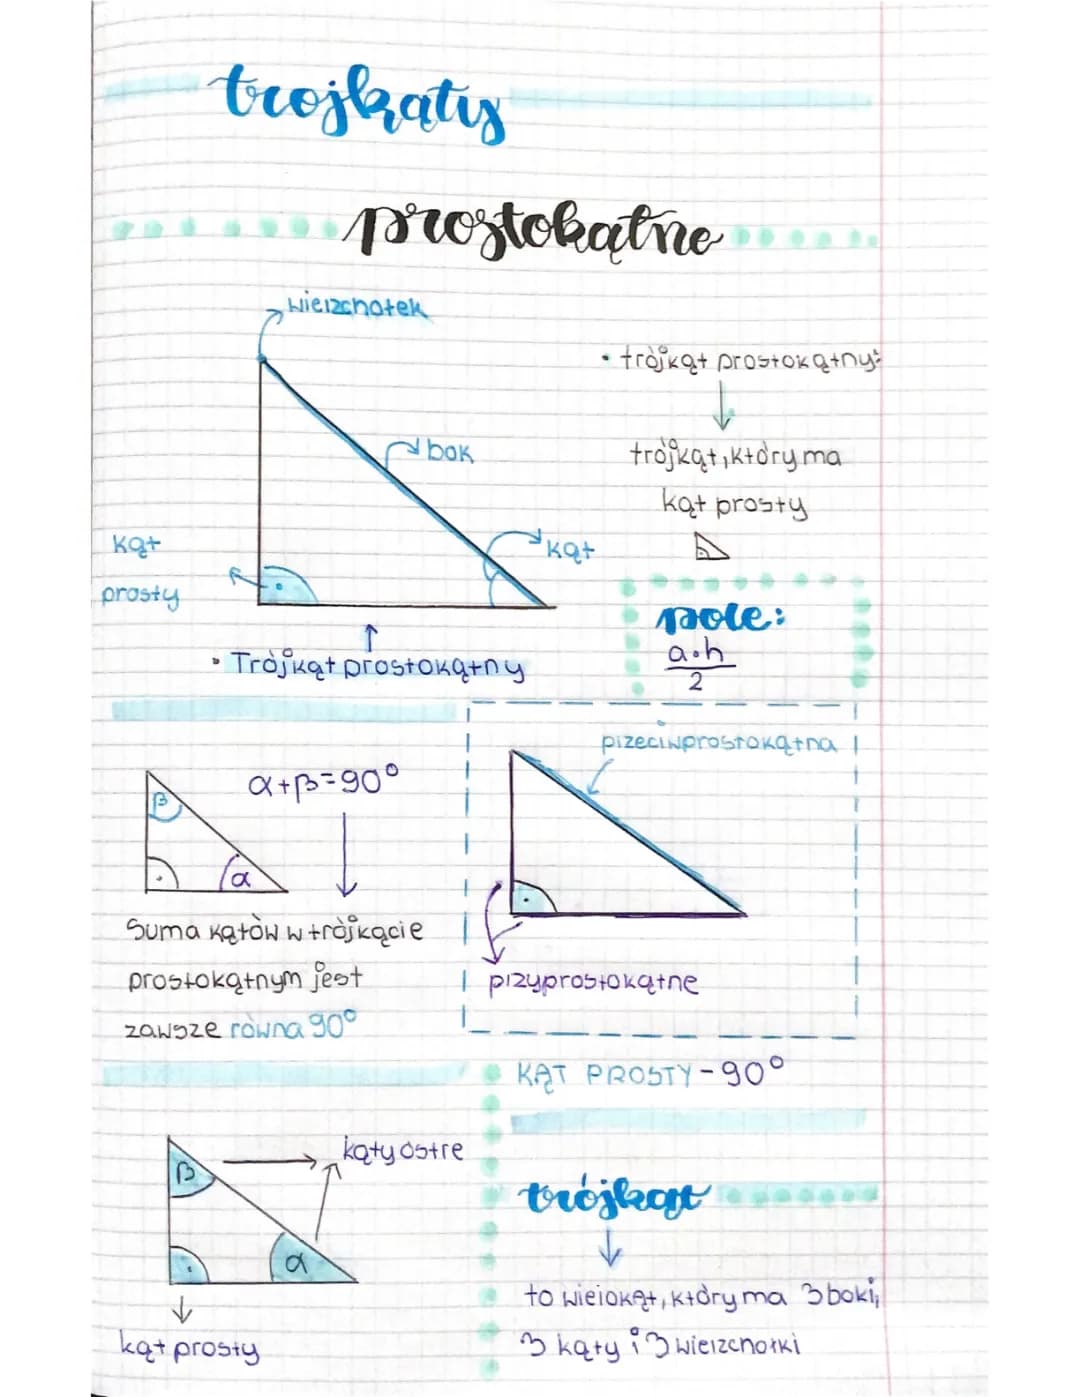 trojkąty
prostokątne
wierzchołek
• trójkąt prostokątny:
bok
trójkąt, który ma
kąt prosty
kąt
prosty
kąt
pole:
a·h
2
• Trójkąt prostokątny
przeciwprostokątna
α+β=90°
β
α
Suma kątów w trójkącie
prostokątnym jest
zawsze równa 90°
przyprostokątne
KĄT PROSTY - 90°
kąty ostre
β
α
kąt prosty
trójkąt
to wielokąt, który ma 3 boki,
3 kąty i 3 wierzchołki